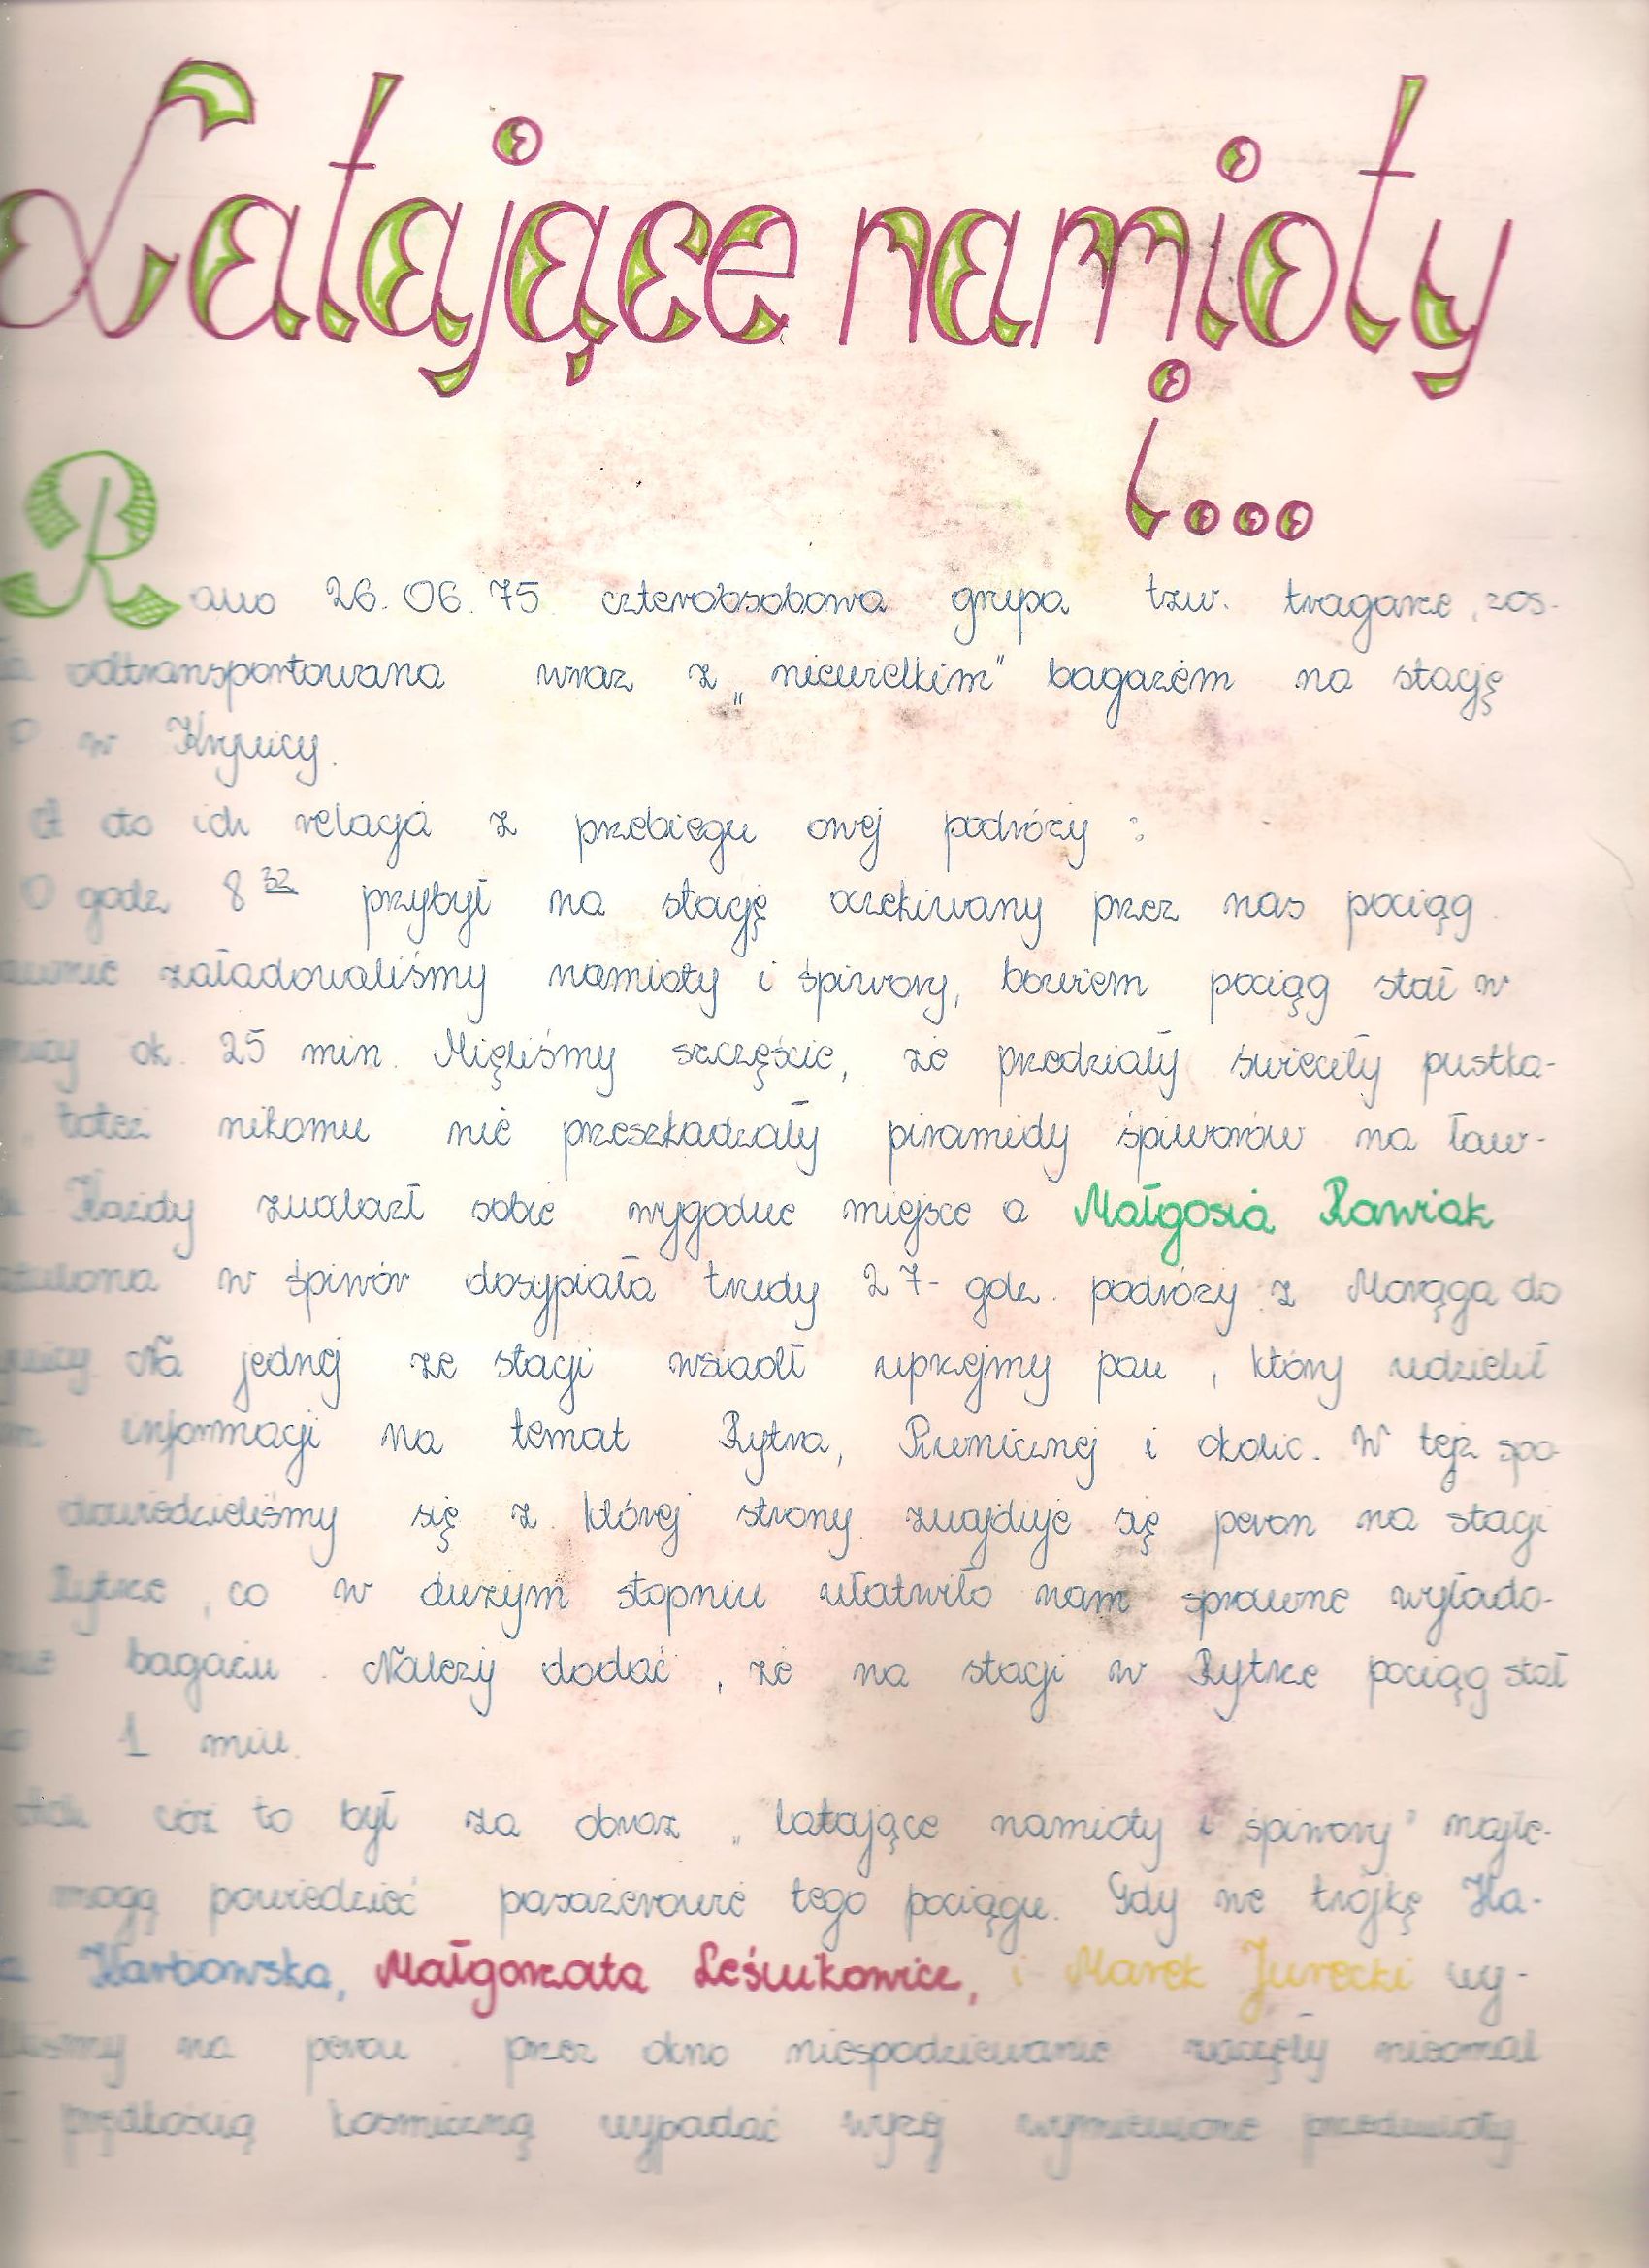 Latające namioty
i...
Rano 26.06.75 czteroosobowa grupa tzw. tragarze, zos-
ła odtransportowana wraz z „niewielkim" bagażem na stację
P w Krynicy.
A oto ich relacja z przebiegu owej podróży :
O godz 8 32 przybył na stację oczekiwany przez nas pociąg.
załadowaliśmy namioty i śpiwory, bowiem pociąg stał w
nicy ok. 25 min. Mięliśmy szczęście, że przedziały świeciły pustka-
, toteż nikomu nie przeszkadzały piramidy śpiworów na ław-
Każdy znalazł sobie wygodne miejsce a Małgosia Rawiak
tulona w śpiwór dosypiała trudy 27-godz. podróży z Morąga do
nicy. Na jednej ze stacji wsiadł uprzejmy pan, który udzielił
informacji na temat Rytra, Piwnicznej i okolic. W tejż spo-
dowiedzieliśmy się z której strony znajduje się peron na stacji
Rytrze, co w dużym stopniu ułatwiło nam sprawne wyłado-
nie bagażu. Należy dodać, że na stacji w Rytrze pociąg stał
1 min.
Ach cóż to był za obraz „latające namioty i śpiwory" najle-
mogą powiedzieć pasażerowie tego pociągu. Gdy we trójkę Ha-
Harbowska, Małgorzata Leśnikowicz, i Marek Jurecki wy-
liśmy na peron. przez okno niespodziewanie zaczęły nieomal
z prędkością kosmiczną wypadać wyżej wymienione przedmioty.